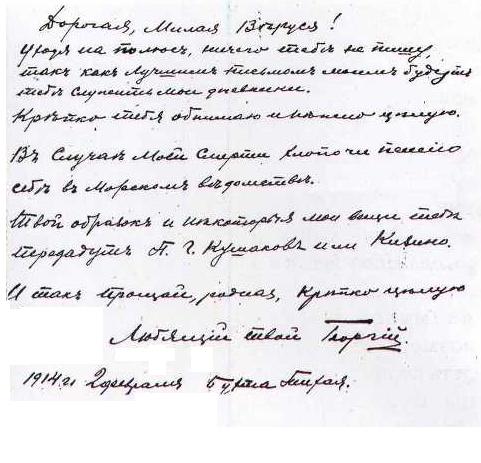 Дорогая, Милая Вѣруся!
Уходя на полюсъ, ничего тебѣ не пишу
такъ какъ лучшимъ письмомъ моимъ будутъ
тебѣ служить мои дневники.
Крѣпко тебя обнимаю и нѣжно цѣлую.
Въ случаѣ моей смерти хлопочи пенсію
себѣ въ Морскомъ вѣдомствѣ.
Твой образокъ и нѣкоторыя мои вещи тебѣ
передадутъ П. Г. Кушаковъ или Кизино.
И такъ прощай, родная, крѣпко цѣлую
Любящій твой Георгій
1914 г. 2 февраля Бухта Тихая.